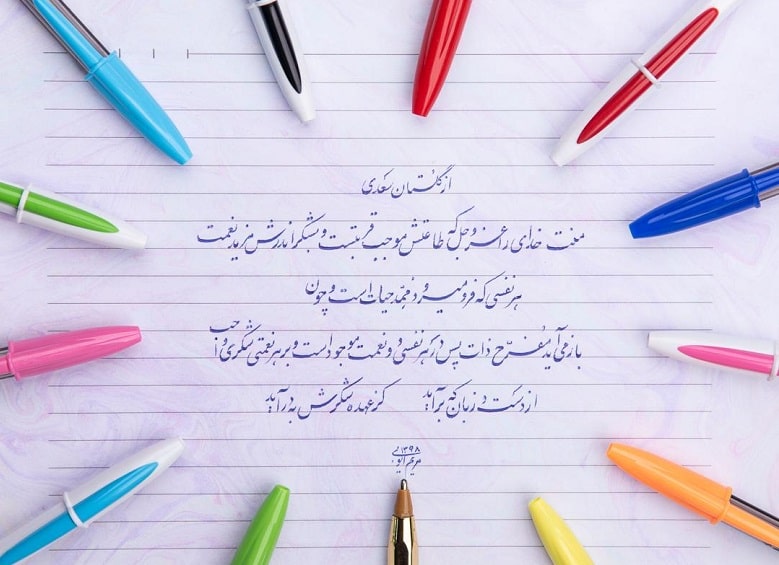 از گلستان سعدی
منت خدای را عز و جل که طاعتش موجب قربتست و بشکر اندرش مزید نعمت
هر نفسی که فرو میرود ممد حیات است و چون
باز می آید مفرّح ذات پس در هر نفسی دو نعمت موجود است و بر هر نعمتی شکری واجب
از دست و زبان که برآید کز عهده شکرش به درآید
۱۳۹۸
مریم ایوبی